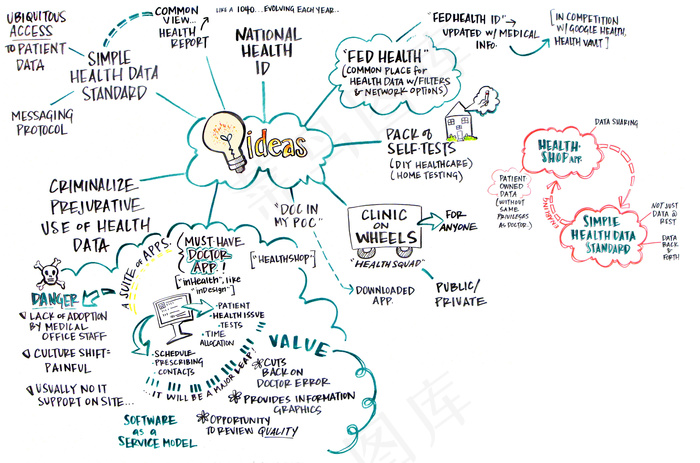 UBIQUITOUS
ACCESS
TO PATIENT
DATA
SIMPLE
HEALTH DATA
STANDARD
MESSAGING
PROTOCOL
COMMON
VIEW...
HEALTH
REPORT
LIKE A 1040... EVOLVING EACH YEAR..
NATIONAL
HEALTH
ID
"FED HEALTH"
(COMMON PLACE for
HEALTH DATA W/FILTERS
& NETWORK OPTIONS)
"FED HEALTH ID"
UPDATED W/ MEDICAL
INFO.
[IN COMPETITION
W/ GOOGLE HEALTH,
HEALTH VAULT]
ideas
PACK of
SELF-TESTS
(DIY HEALTHCARE)
(HOME TESTING)
DATA SHARING
HEALTH-
SHOP APP
PATIENT
OWNED
DATA
(WITHOUT
SAME
PRIVILEGES
AS DOCTOR)
SHARING
SIMPLE
HEALTH DATA
STANDARD
NOT JUST
DATA @
REST
DATA
BACK &
FORTH
CRIMINALIZE
PREJURATIVE
USE OF HEALTH
DATA
"DOC IN
MY POC"
CLINIC
ON
WHEELS
"HEALTH SQUAD"
FOR
ANYONE
DOWNLOADED
APP.
PUBLIC/
PRIVATE
A SUITE OF APPS.
MUST HAVE
DOCTOR
APP!
["inHealth", like
"inDesign"]
["HEALTHSHOP"]
• PATIENT
• HEALTH ISSUE
• TESTS
• TIME
ALLOCATION
• SCHEDULE
• PRESCRIBING
• CONTACTS
...IT WILL BE A MAJOR LEAP!
DANGER
LACK OF ADOPTION
BY MEDICAL
OFFICE STAFF
CULTURE SHIFT=
PAINFUL
USUALLY NO IT
SUPPORT ON SITE...
VALUE
CUTS
BACK ON
DOCTOR ERROR
PROVIDES INFORMATION
GRAPHICS
OPPORTUNITY
TO REVIEW QUALITY
SOFTWARE
as a
SERVICE MODEL